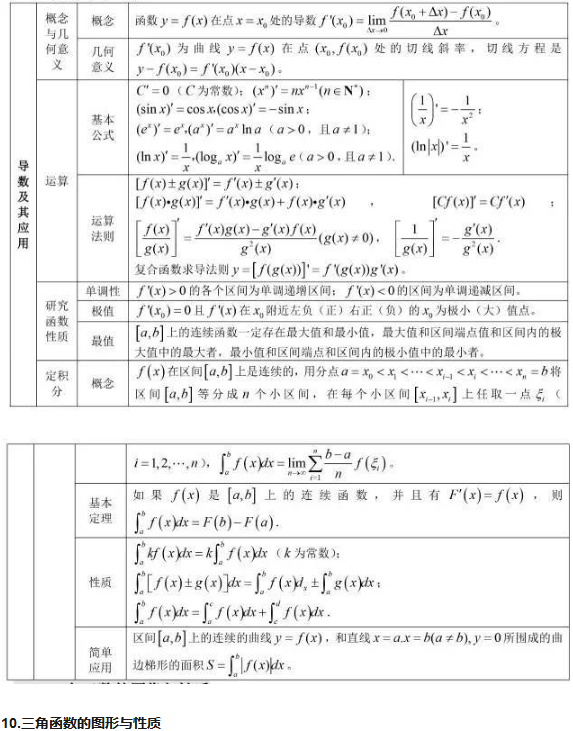 概念与几何意义
概念
函数 y = f(x) 在点 x = x₀ 处的导数 f'(x₀) = lim_{Δx→0} (f(x₀ + Δx) − f(x₀))/Δx 。
几何意义
f'(x₀) 为曲线 y = f(x) 在点 (x₀, f(x₀)) 处的切线斜率，切线方程是
y − f(x₀) = f'(x₀)(x − x₀) 。
导数及其应用
运算
基本公式
C' = 0（C 为常数）; (xⁿ)' = nxⁿ⁻¹(n∈N*) ;
(sin x)' = cos x,(cos x)' = −sin x ;
(eˣ)' = eˣ,(aˣ)' = aˣ ln a（a > 0，且 a ≠ 1）;
(ln x)' = 1/x,(logₐ x)' = 1/x logₐ e（a > 0，且 a ≠ 1）.
(1/x)' = −1/x² ;
(ln|x|)' = 1/x 。
运算法则
[f(x) ± g(x)]' = f'(x) ± g'(x) ;
[f(x)•g(x)]' = f'(x)•g(x) + f(x)•g'(x) ， [Cf(x)]' = Cf'(x) ;
[f(x)/g(x)]' = (f'(x)g(x) − g'(x)f(x))/g²(x) (g(x) ≠ 0)，[1/g(x)]' = −g'(x)/g²(x) .
复合函数求导法则 y = [f(g(x))]' = f'(g(x))g'(x) 。
研究函数性质
单调性
f'(x) > 0 的各个区间为单调递增区间; f'(x) < 0 的区间为单调递减区间。
极值
f'(x₀) = 0 且 f'(x) 在 x₀ 附近左负（正）右正（负）的 x₀ 为极小（大）值点。
最值
[a,b] 上的连续函数一定存在最大值和最小值，最大值和区间端点值和区间内的极
大值中的最大者，最小值和区间端点和区间内的极小值中的最小者。
定积分
概念
f(x) 在区间 [a,b] 上是连续的，用分点 a = x₀ < x₁ < ⋯ < xᵢ₋₁ < xᵢ < ⋯ < xₙ = b 将
区间 [a,b] 等分成 n 个小区间，在每个小区间 [xᵢ₋₁, xᵢ] 上任取一点 ξᵢ（
i = 1,2,⋯,n），∫ₐᵇ f(x)dx = lim_{n→∞} Σ_{i=1}^{n} (b−a)/n f(ξᵢ) 。
基本定理
如果 f(x) 是 [a,b] 上的连续函数，并且有 F'(x) = f(x) ，则
∫ₐᵇ f(x)dx = F(b) − F(a) .
性质
∫ₐᵇ kf(x)dx = k∫ₐᵇ f(x)dx（k 为常数）;
∫ₐᵇ [f(x) ± g(x)]dx = ∫ₐᵇ f(x)dₓ ± ∫ₐᵇ g(x)dx ;
∫ₐᵇ f(x)dx = ∫ₐᶜ f(x)dx + ∫_c^d f(x)dx .
简单应用
区间 [a,b] 上的连续的曲线 y = f(x)，和直线 x = a,x = b(a ≠ b), y = 0 所围成的曲
边梯形的面积 S = ∫ₐᵇ |f(x)|dx 。
10.三角函数的图形与性质